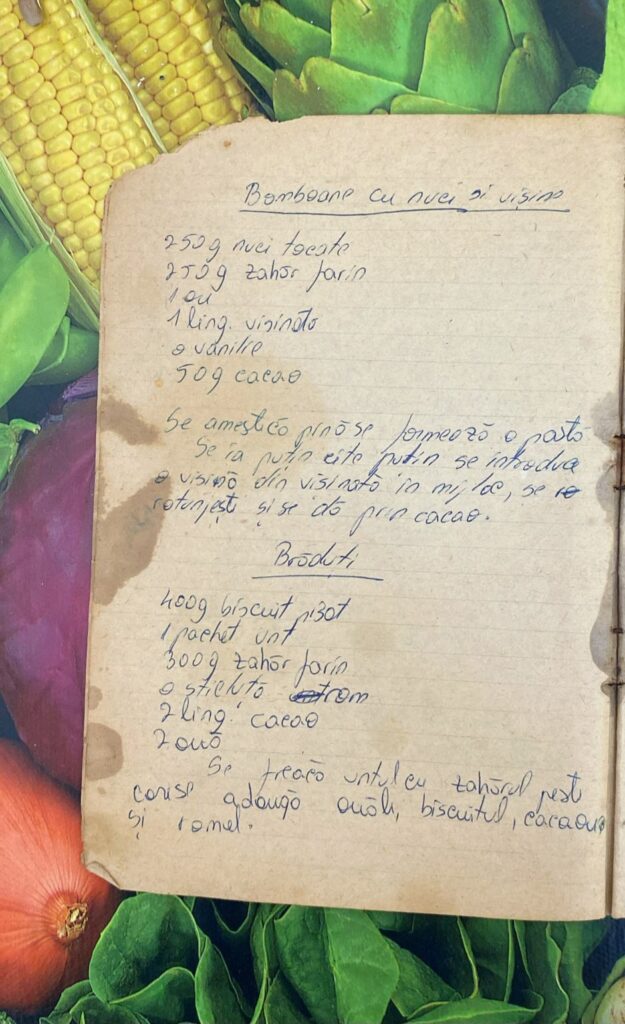 Bomboane cu nuci și vișine
250g nuci tocate
250g zahăr farin
1 ou
1 ling. vișinată
o vanilie
50g cacao
Se amestică pînă se formează o pastă
Se ia puțin cîte puțin se introduce
o vișină din vișinată în mijloc, se
rotunjești și se dă prin cacao.
Brăduți
400g biscuit pisat
1 pachet unt
300g zahăr farin
o sticluță rom
2 ling. cacao
2 ouă
Se freacă untul cu zahărul pest
care se adaugă ouăle, biscuitul, cacaoua
și romul.